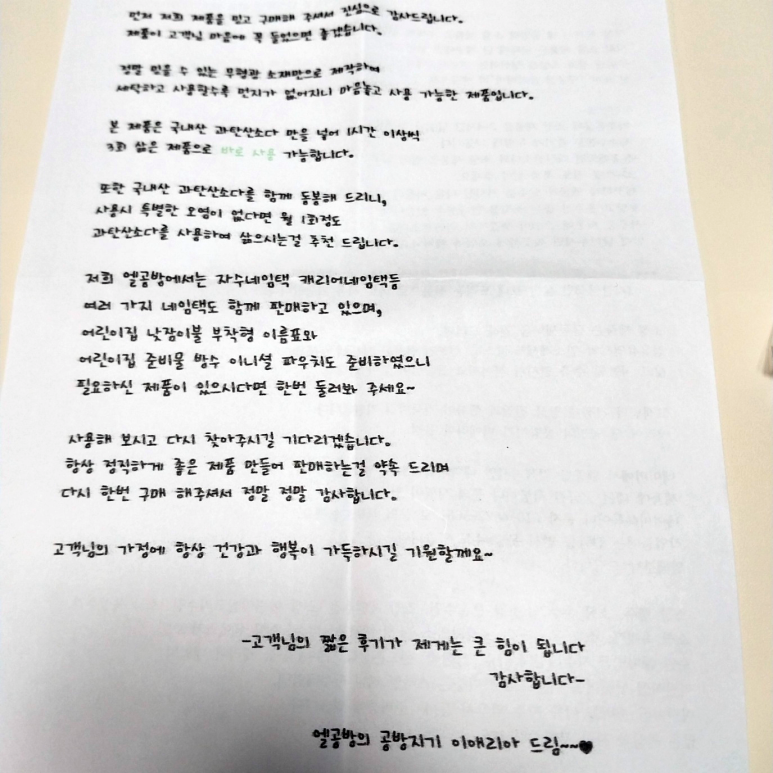 먼저 저희 제품을 믿고 구매해 주셔서 진심으로 감사드립니다.
제품이 고객님 마음에 꼭 들었으면 좋겠습니다.
정말 믿을 수 있는 무형광 소재만으로 제작하여
세탁하고 사용할수록 먼지가 없어지니 마음놓고 사용 가능한 제품입니다.
본 제품은 국내산 과탄산소다 만을 넣어 1시간 이상씩
3회 삶은 제품으로 바로 사용 가능합니다.
또한 국내산 과탄산소다를 함께 동봉해 드리니,
사용시 특별한 오염이 없다면 월 1회정도
과탄산소다를 사용하여 삶으시는걸 추천 드립니다.
저희 엘공방에서는 자수네임택 캐리어네임택등
여러 가지 네임택도 함께 판매하고 있으며,
어린이집 낮잠이불 부착형 이름표와
어린이집 준비물 방수 이니셜 파우치도 준비하였으니
필요하신 제품이 있으시다면 한번 둘러봐 주세요~
사용해 보시고 다시 찾아주시길 기다리겠습니다.
항상 정직하게 좋은 제품 만들어 판매하는걸 약속 드리며
다시 한번 구매 해주셔서 정말 정말 감사합니다.
고객님의 가정에 항상 건강과 행복이 가득하시길 기원할께요~
-고객님의 짧은 후기가 제게는 큰 힘이 됩니다
감사합니다-
엘공방의 공방지기 이애리아 드림~~♥